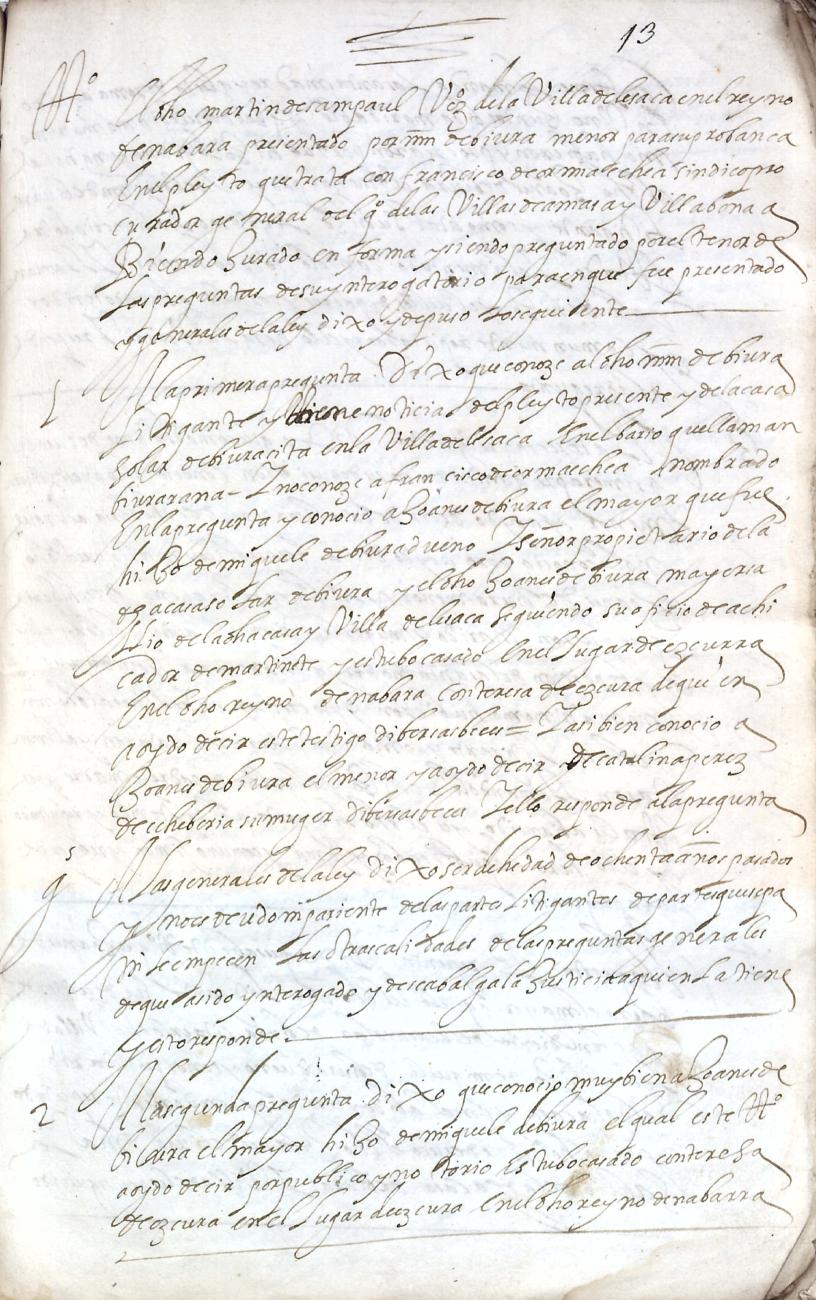 13
tº El dho martin de sampaul Vezº de la Villa de lesaca en el reyno
de nabara presentado por mrn de biura menor para su probanca
En el pleyto que trata con francisco de ormaechea sindico pro
curador general del qº de las Villas de amasa y Villabona a
Biendo Jurado en forma y siendo preguntado por el tenor de
las preguntas de su ynterogatorio para en que fue presentado
y generales de la ley dixo y depuso lo seguiente
1 A la primera pregunta Dixo que conoze al dho mrn de biura
litigante y tiene noticia del pleyto presente y de la casa
solar de biura cita en la Villa de lesaca En el bario que llaman
biurarana - I no conoze a fran cisco de ormaechea nombrado
En la pregunta y conocio a Joanes de biura el mayor que fue
hijo de miguele de biura dueno I señor propietario de la
dha casa solar de biura y el dho Joanes de biura mayor sa
llio de la dha casa y Villa de lesaca seguiendo su oficio de achi
cador de martinte y estubo casado En el lugar de ezcurra
En el dho reyno de nabara con teresa de ezcura de quien
a oydo decir este testigo dibersas beces = I asi bien conocio a
Joanes de biura el menor y a oydo decir de catalina perez
de echeberia su muger dibersas beces I esto responde a la pregunta
gs A las generales de la ley dixo ser de hedad de ochenta años pasados
y no es deudo ni pariente de las partes litigantes de partes que sepa
ni le empecen las otras calidades de las preguntas generales
de que a sido ynterogado y desea balga la Justicia a quien la tiene
y esto responde
2 A la segunda pregunta dixo que conocio muy bien a Joanes de
biura el mayor hijo de miguele de biura el qual este tº
a oydo decir por publico y no torio Estubo casado con teresa
de ezcura en el lugar de ezcura En el dho reyno de nabarra